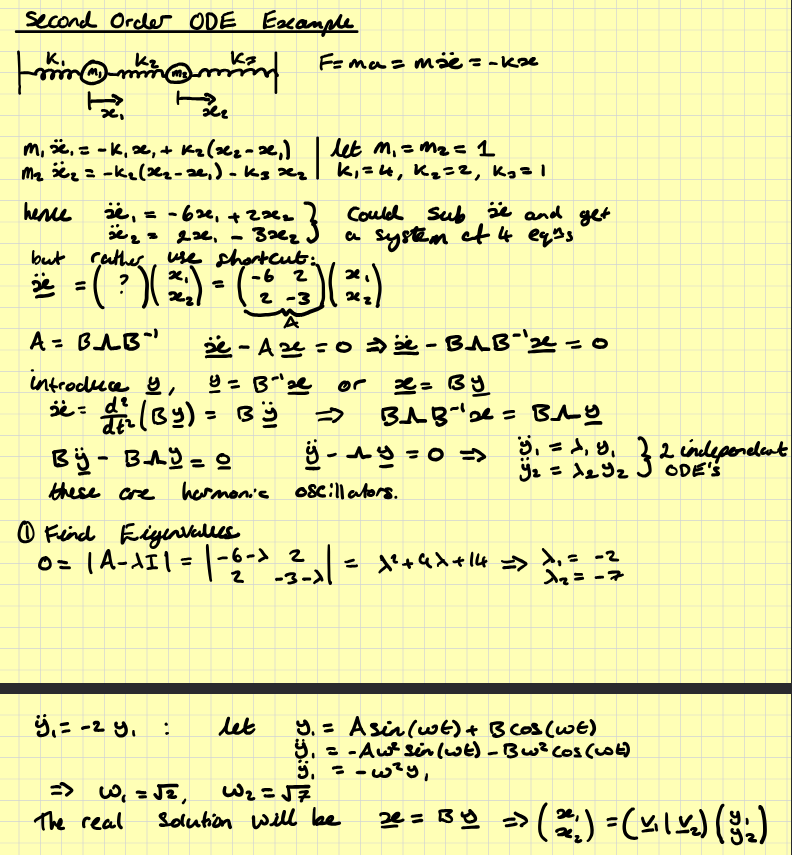 Second Order ODE Example
K₁ m₁ K₂ m₂ K₃ F = ma = mẍ = -Kx
x₁ x₂
m₁ẍ₁ = -K₁x₁ + K₂(x₂-x₁) | let m₁ = m₂ = 1
m₂ẍ₂ = -K₂(x₂-x₁) - K₃x₂ | K₁=4, K₂=2, K₃=1
hence ẍ₁ = -6x₁ + 2x₂ } Could sub ẍ and get
ẍ₂ = 2x₁ - 3x₂ } a system of 4 eqⁿs
but rather use shortcut:
ẍ = ( ? ) (x₁ x₂) = (-6 2 2 -3) (x₁ x₂)
A
A = BΛB⁻¹ ẍ - Ax = 0 ⇒ ẍ - BΛB⁻¹x = 0
introduce y, y = B⁻¹x or x = By
ẍ = d²/dt² (By) = Bÿ ⇒ BΛB⁻¹x = BΛy
Bÿ - BΛy = 0 ÿ - Λy = 0 ⇒ ÿ₁ = λ₁y₁ } 2 independent
ÿ₂ = λ₂y₂ } ODE's
these are harmonic oscillators.
① Find Eigenvalues
0 = |A-λI| = |-6-λ 2 2 -3-λ| = λ²+9λ+14 ⇒ λ₁ = -2
λ₂ = -7
ÿ₁ = -2y₁ : let y₁ = A sin(ωt) + B cos(ωt)
ÿ₁ = -Aω² sin(ωt) - Bω² cos(ωt)
ÿ₁ = -ω²y₁
⇒ ω₁ = √2, ω₂ = √7
The real solution will be x = By ⇒ (x₁ x₂) = (v₁ | v₂) (y₁ y₂)